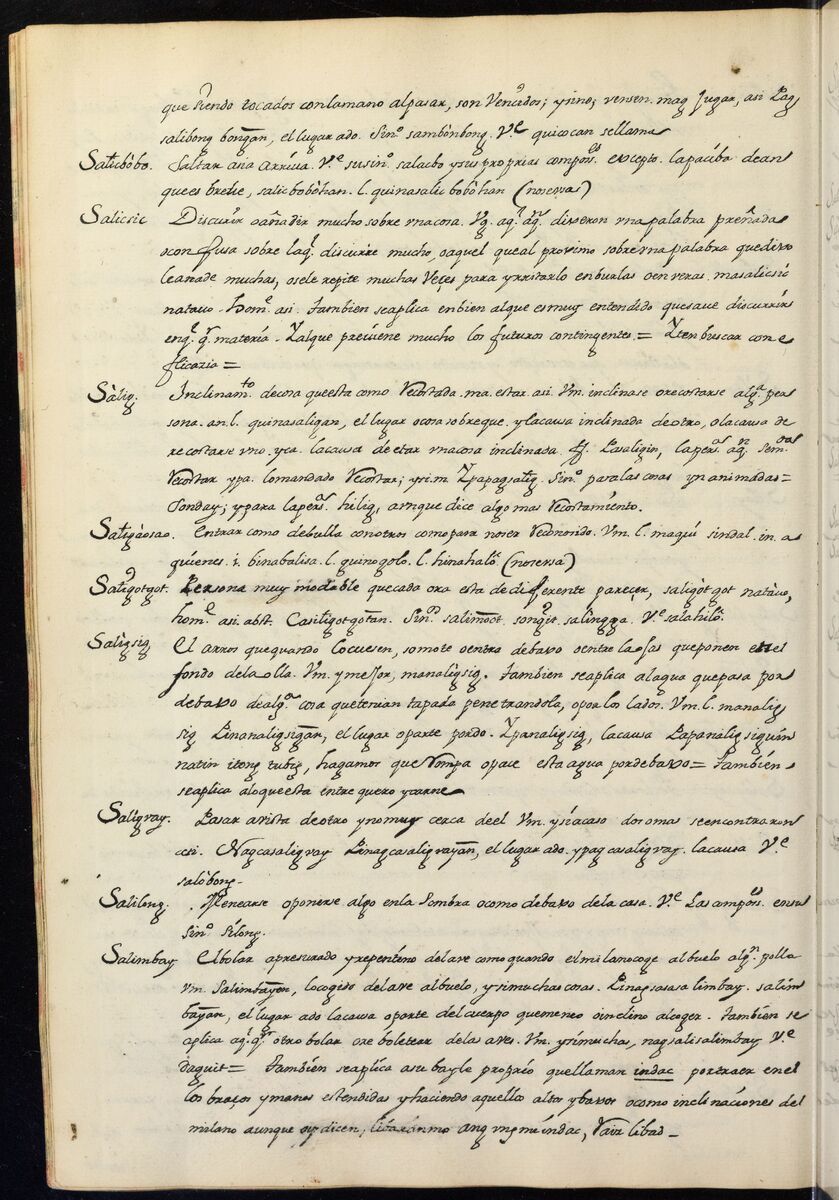 que siendo tocados conlamano alpasar, son Vencidos; ysino; vensen. mag Jugar, asi Pag
salibong bongan, el lugar ado. Sin.º sambònbong. V.e quicocan sellama
Salicbòbo. Saltar asia arriva. V.e susin.º salacbo ysus proprias compos.es excepto lapaciba dean
quees brebe, salicbobohan. l. quinasalic bobohan (noseusa)
Salicsic Discurir oañadir mucho sobre vnacosa. Vg. aq.l aq.n dixeron vna palabra preñada
oconfusa sobre laq.l discurre mucho, oaquel queal proximo sobrevna palabra quedixo
leanade muchas, osele repite muchas Veçes para yrritarlo enbualas oenveras. masalicsic
natauo. hom.e asi. tambien seaplica enbien alque esmuy entendido quesaue discurrir
enq.l q.r materia. Yalque preuiene mucho los futuros contingentes = Yten buscar con e
ficazia =
Sàlig. Inclinam.to decosa queesta como Recostada. ma. estar. asi. Vm. inclinase orecostarse alg.a per
sona. an. l. quinasaligan, el lugar ocosa sobreque. ylacausa inclinada deotro, olacausa de
recostarse vno. yca. lacausa de estar vnacosa inclinada. Pasaligin, lapers.a aq.n
Recostar ypa. lomandado Recostar; ysi.m. Ypapagsalig. Sin.º paralas cosas ynanimadas =
Sonday; ypara lapers.a hilig, aunque dice algo mas Recostamiento.
Saligàosao. Entrar como debulla conotros comopara noser Reconosido. Vm. l. maquisindal. in. a
quienes. i. binabalisa. l. quinogolo. l. hinahalo (noseusa)
Saligotgot. Persona muy mudable quecada ora esta dediferente pareçer, saligòtgot natàuo,
hom.e asi. abst. Casiligotgotan. Sin.os salimoot. songit. salingga. V.e salahilo.
Saligsig El arros quequando locuesen, semete dentro debaxo oentre lasojas queponen enel
fondo dela olla. Vm. ymejor, manaligsig. tambien seaplica alagua quepasa por
debaxo dealg.a cosa quetenian tapada penetrandola, opor los lados. Vm. l. manalig
sig Pinanaligsigan, el lugar oparte pordo. Ypanaligsig, lacausa Papanaligsiguin
natin itong tubig, hagamos que Rompa opase esta agua pordebaxo = tambien
seaplica aloqueesta entre quero ycarne
Saligvay. Pasar avista deotro ynomuy cerca deel Vm. ysiacaso dosomas seencontraron
asi. Nagcasaligvay Pinagcasaligvayan, el lugar ado. ypagcasaligvay. lacausa V.e
salòbong.
Salilong. Menearse oponerse algo enla sombra ocomo debaxo dela casa. V.e Las compos.es ensu
sin.º silong.
Salimbay Elbolar apresurado yrepentino delave como quando elmilanocoge albuelo alg.n polla
vm. Salimbayin, locogido delave albuelo, ysimuchas cosas. Pinagsasasalimbay. salim
bayan, el lugar ado lacausa oparte delcuerpo quemeneo oinclino alcoger. tambien se
aplica aq.l q.r otro bolar ore boletear delas aves. Vm. ysimucha, nagsalisalimbay V.e
daguit = tambien seaplica asu bayle proprio quellaman indac portraer enel
los braços ymanos estendidas yhaciendo aquellos altos ybaxos ocomo inclinaciones del
milano aunque oy dicen, ang